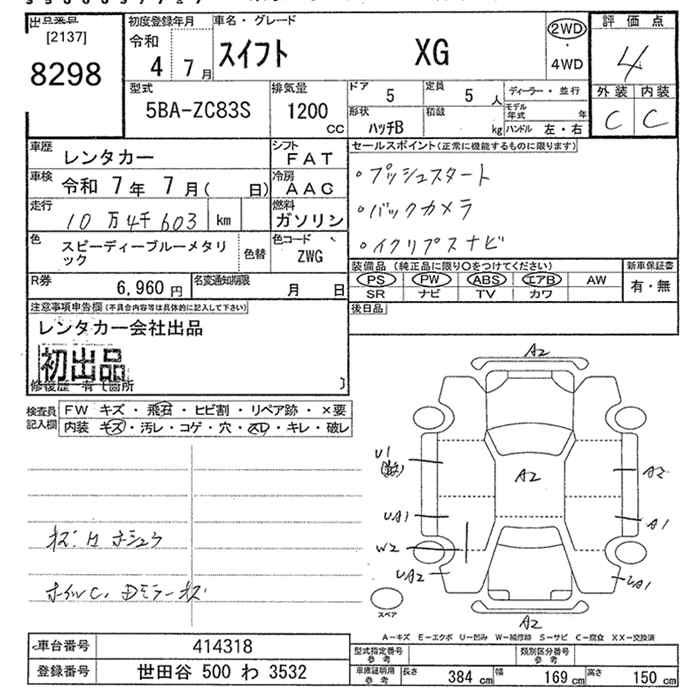 [2137]
8298
初度登録年月
令和
4 7 月
車名・グレード
スイフト XG
2WD
・
4WD
評価点
4
外装 内装
C C
型式
5BA-ZC83S
排気量
1200
CC
ドア 5
定員 5 人
形状 ハッチB
積載 kg
ディーラー・並行
モデル年式 年
ハンドル 左・右
車歴 レンタカー
シフト FAT
車検 令和 7 年 7 月( 日)
冷房 AAC
走行 10 万 4千 603 km
燃料 ガソリン
色 スピーディーブルーメタリック
色替
色コード ZWG
R券 6,960 円
名変通知期限 月 日
セールスポイント(正常に機能するものに限ります)
・プッシュスタート
・バックカメラ
・イクリプスナビ
装備品(純正品に限り○をつけてください)
PS PW ABS エアB AW
SR ナビ TV カワ
新車保証書
有・無
後日品
注意事項申告欄(不具合内容等は具体的に記入して下さい)
レンタカー会社出品
初出品
修復歴 有〔箇所 〕
検査員記入欄
FW キズ・飛石・ヒビ割・リペア跡・×要
内装 キズ・汚レ・コゲ・穴・スレ・キレ・破レ
A2
U1
A2
A2
UA1
A1
W2
UA2
UA1
スペア
A2
A-キズ E-エクボ U-凹み W-補修跡 S-サビ C-腐食 XX-交換済
車台番号 414318
登録番号 世田谷 500 わ 3532
型式指定番号 参考
類別区分番号 参考
車庫証明用 参考
長さ 384 cm
幅 169 cm
高さ 150 cm